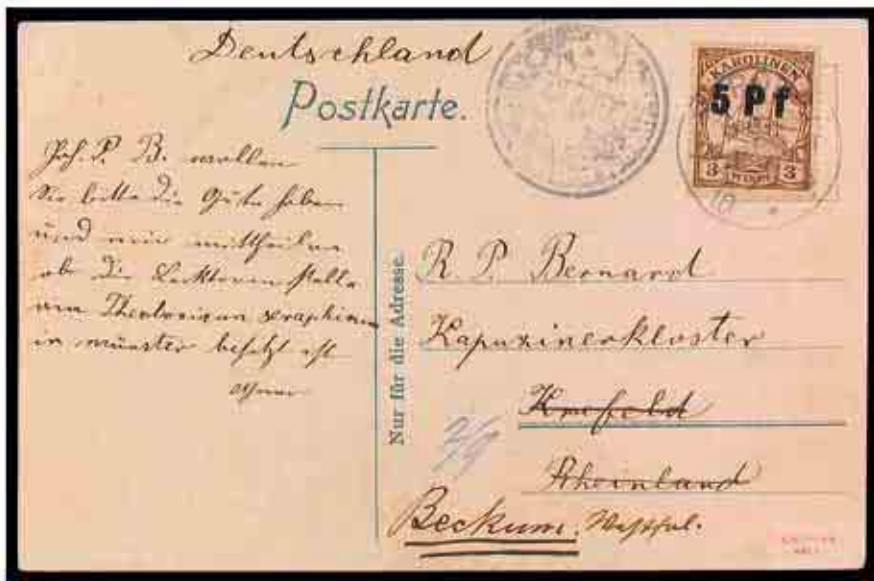 Deutschland
Postkarte.
KAROLINEN
5 Pf
3 3
Hoch. P. B. wollen
Sie bitte die Güte haben
und mir mittheilen
ob die Lecktorenstelle
am Theologicum seraphicum
in Münster besetzt ist
Nur für die Adresse.
R. P. Bernard
Kapuzinerkloster
Krefeld
Rheinland
2/9
Beckum. Westfal.